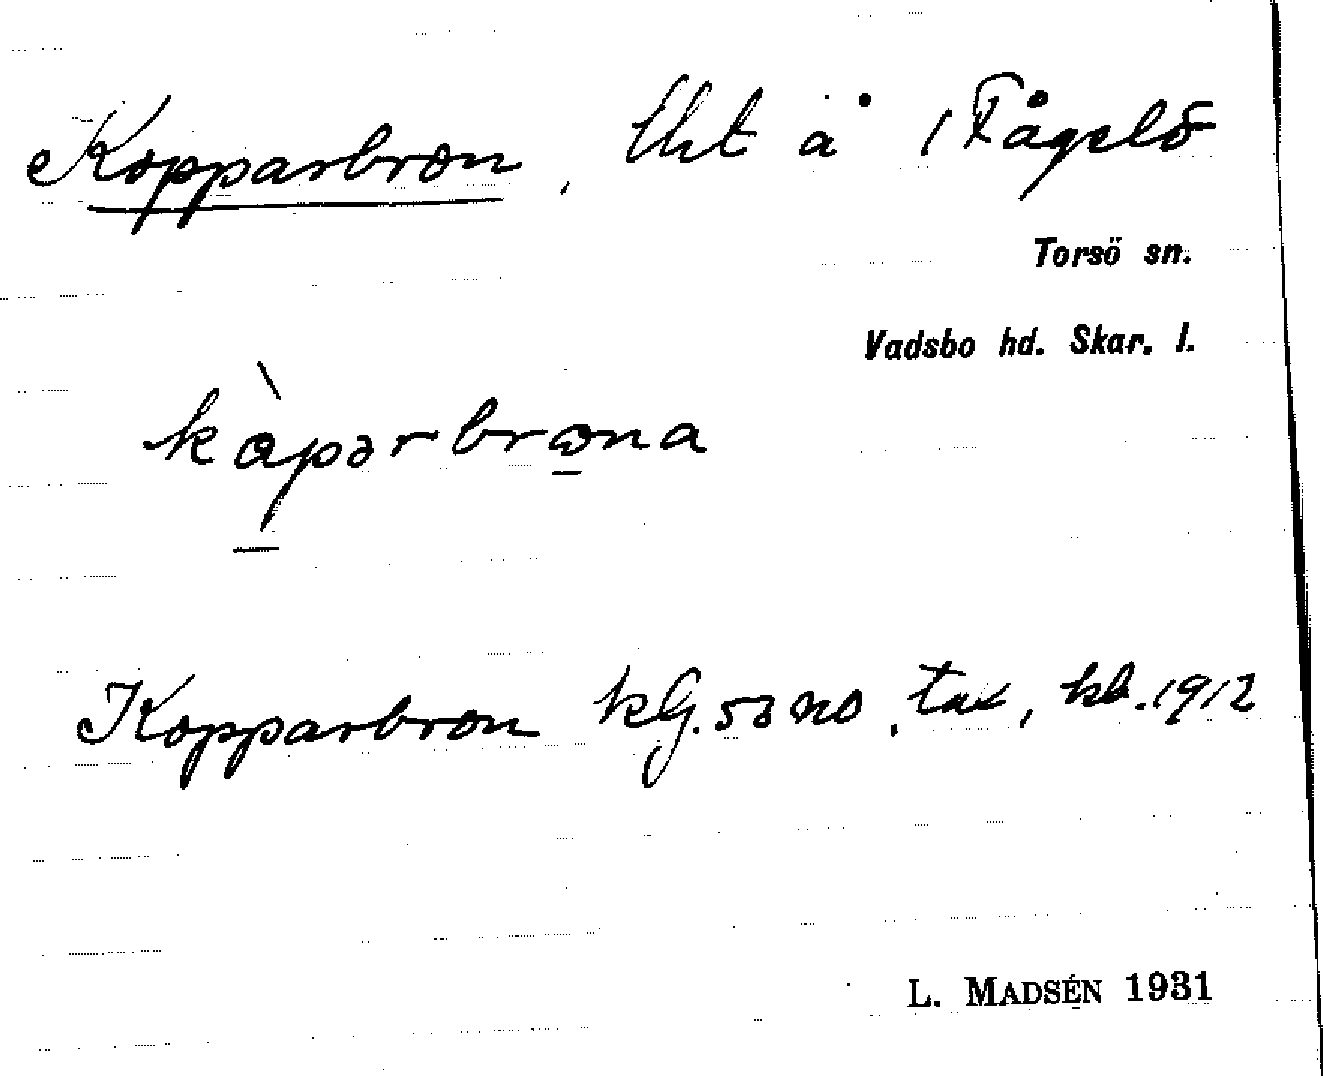 Kopparbron, lht å 1 Fågelö
Torsö sn.
Vadsbo hd. Skar. l.
kàpərbrωna
Kopparbron kG. 53 no, tax, kb. 1912
L. MADSÉN 1931